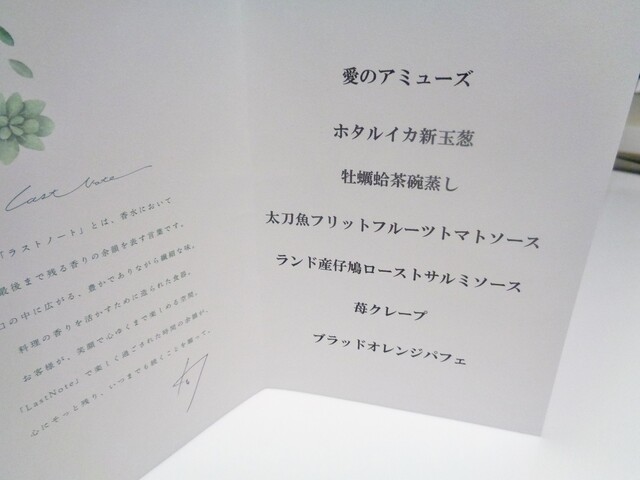 Last Note
「ラストノート」とは、香水において
最後まで残る香りの余韻を表す言葉です。
口の中に広がる、豊かでありながら繊細な味。
料理の香りを活かすために造られた食器。
お客様が、笑顔で心ゆくまで楽しめる空間。
「LastNote」で楽しく過ごされた時間の余韻が、
心にそっと残り、いつまでも続くことを願って。
愛のアミューズ
ホタルイカ新玉葱
牡蠣蛤茶碗蒸し
太刀魚フリットフルーツトマトソース
ランド産仔鳩ローストサルミソース
苺クレープ
ブラッドオレンジパフェ